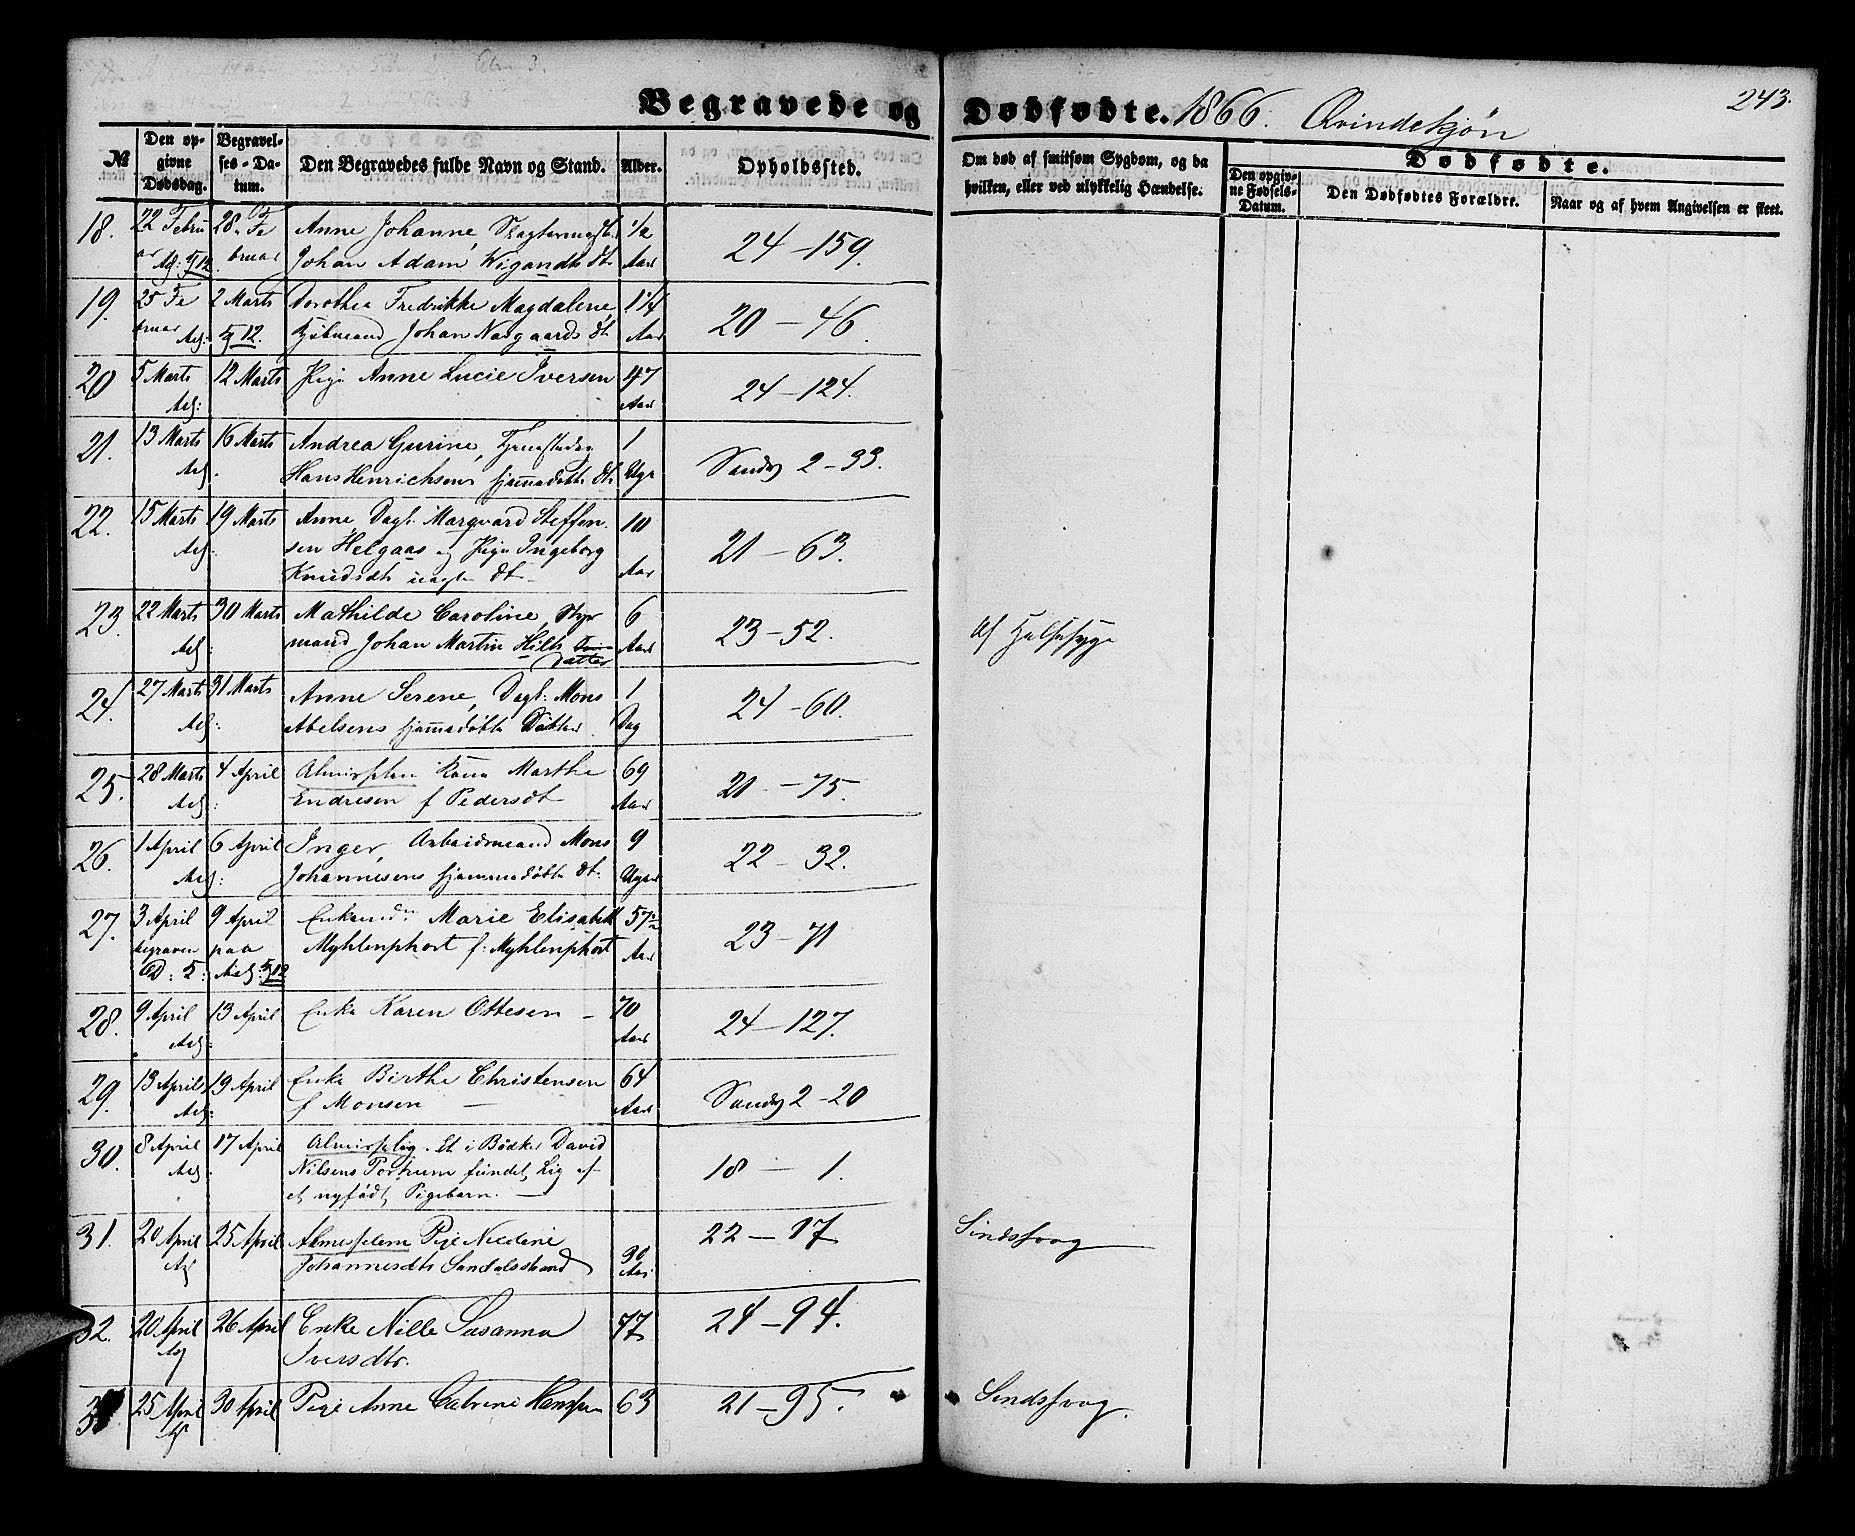 Begravede og Dødfødte. 1866. Qvindekjøn
243.
№ Den opgivne Dødsdag. Begravelses-Datum. Den Begravedes fulde Navn og Stand. Alder. Opholdssted.
Om død af smitsom Sygdom, og da hvilken, eller ved ulykkelig Hændelse.
Dødfødte.
Den opgivne Fødsels-Datum. Den Dødfødtes Forældre. Naar og af hvem Angivelsen er skeet.
18. 22 Febru 28. Fe Anne Johanne, 1/2 24-159.
ar bruar Johan Adam Wigandts Dt. Aar
19. 25 Fe 2 Marts Dorothea Fredrikke Magdalene, 1 1/4 20-46.
bruar Kjøbmand Johan Naagaards Dt. Aar
20. 5 Marts 12 Marts Pige Anne Lucie Iversen 47 24-124.
Aar
21. 13 Marts 16 Marts Andrea Gurine, 1 2-33.
Hans Henrichsens hjemmedøbte Dt.
22. 15 Marts 19 Marts Anne, Dagl. Marqvard Steffen 10 21-63.
sen Helgaas og Pige Ingeborg
Knudsdt uægte Dt. Aar
23. 22 Marts 30 Marts Mathilde Caroline, Styr 6 23-52.
mand Johan Martin Hilts Aar
Datter
Af Halssyge
24. 27 Marts 31 Marts Anne Serene, Dagl: Mons 1 24-60.
Abelsens hjemmedøbte Datter. Dag
25. 28 Marts 4 April Almisselem Kone Marthe 69 21-75.
Endresen f Pedersdt Aar
26. 1 April 6 April Inger, Arbeidsmand Mons 9 22-32.
Johannesens hjemmedøbte Dt. Uger
27. 3 April 9 April Enkemd: Marie Elisabeth 57 23-71
begraven paa Myhlenphort f: Myhlenphort Aar
D: 5:
28. 9 April 13 April Enke Karen Ottesen 70 24-127.
Aar
29. 13 April 19 April Enke Birthe Christensen 64 2-20
f Monsen Aar
30. 8 April 17 April Almisselig. Et i Bødker David 18-1.
Nilsens Portrum fundet Lig af
et nyfødt Pigebarn.
31. 20 April 25 April Almisselem Pige Nicoline 22-17
Johannesdtr Sandalsstrand 30
Aar
Sindssvag
32. 20 April 26 April Enke Nille Susanna 77 24-94.
Iversdtr.
33 25 April 30 April Pige Anne Catrine Hanssen 63 21-95.
Sindssvag.